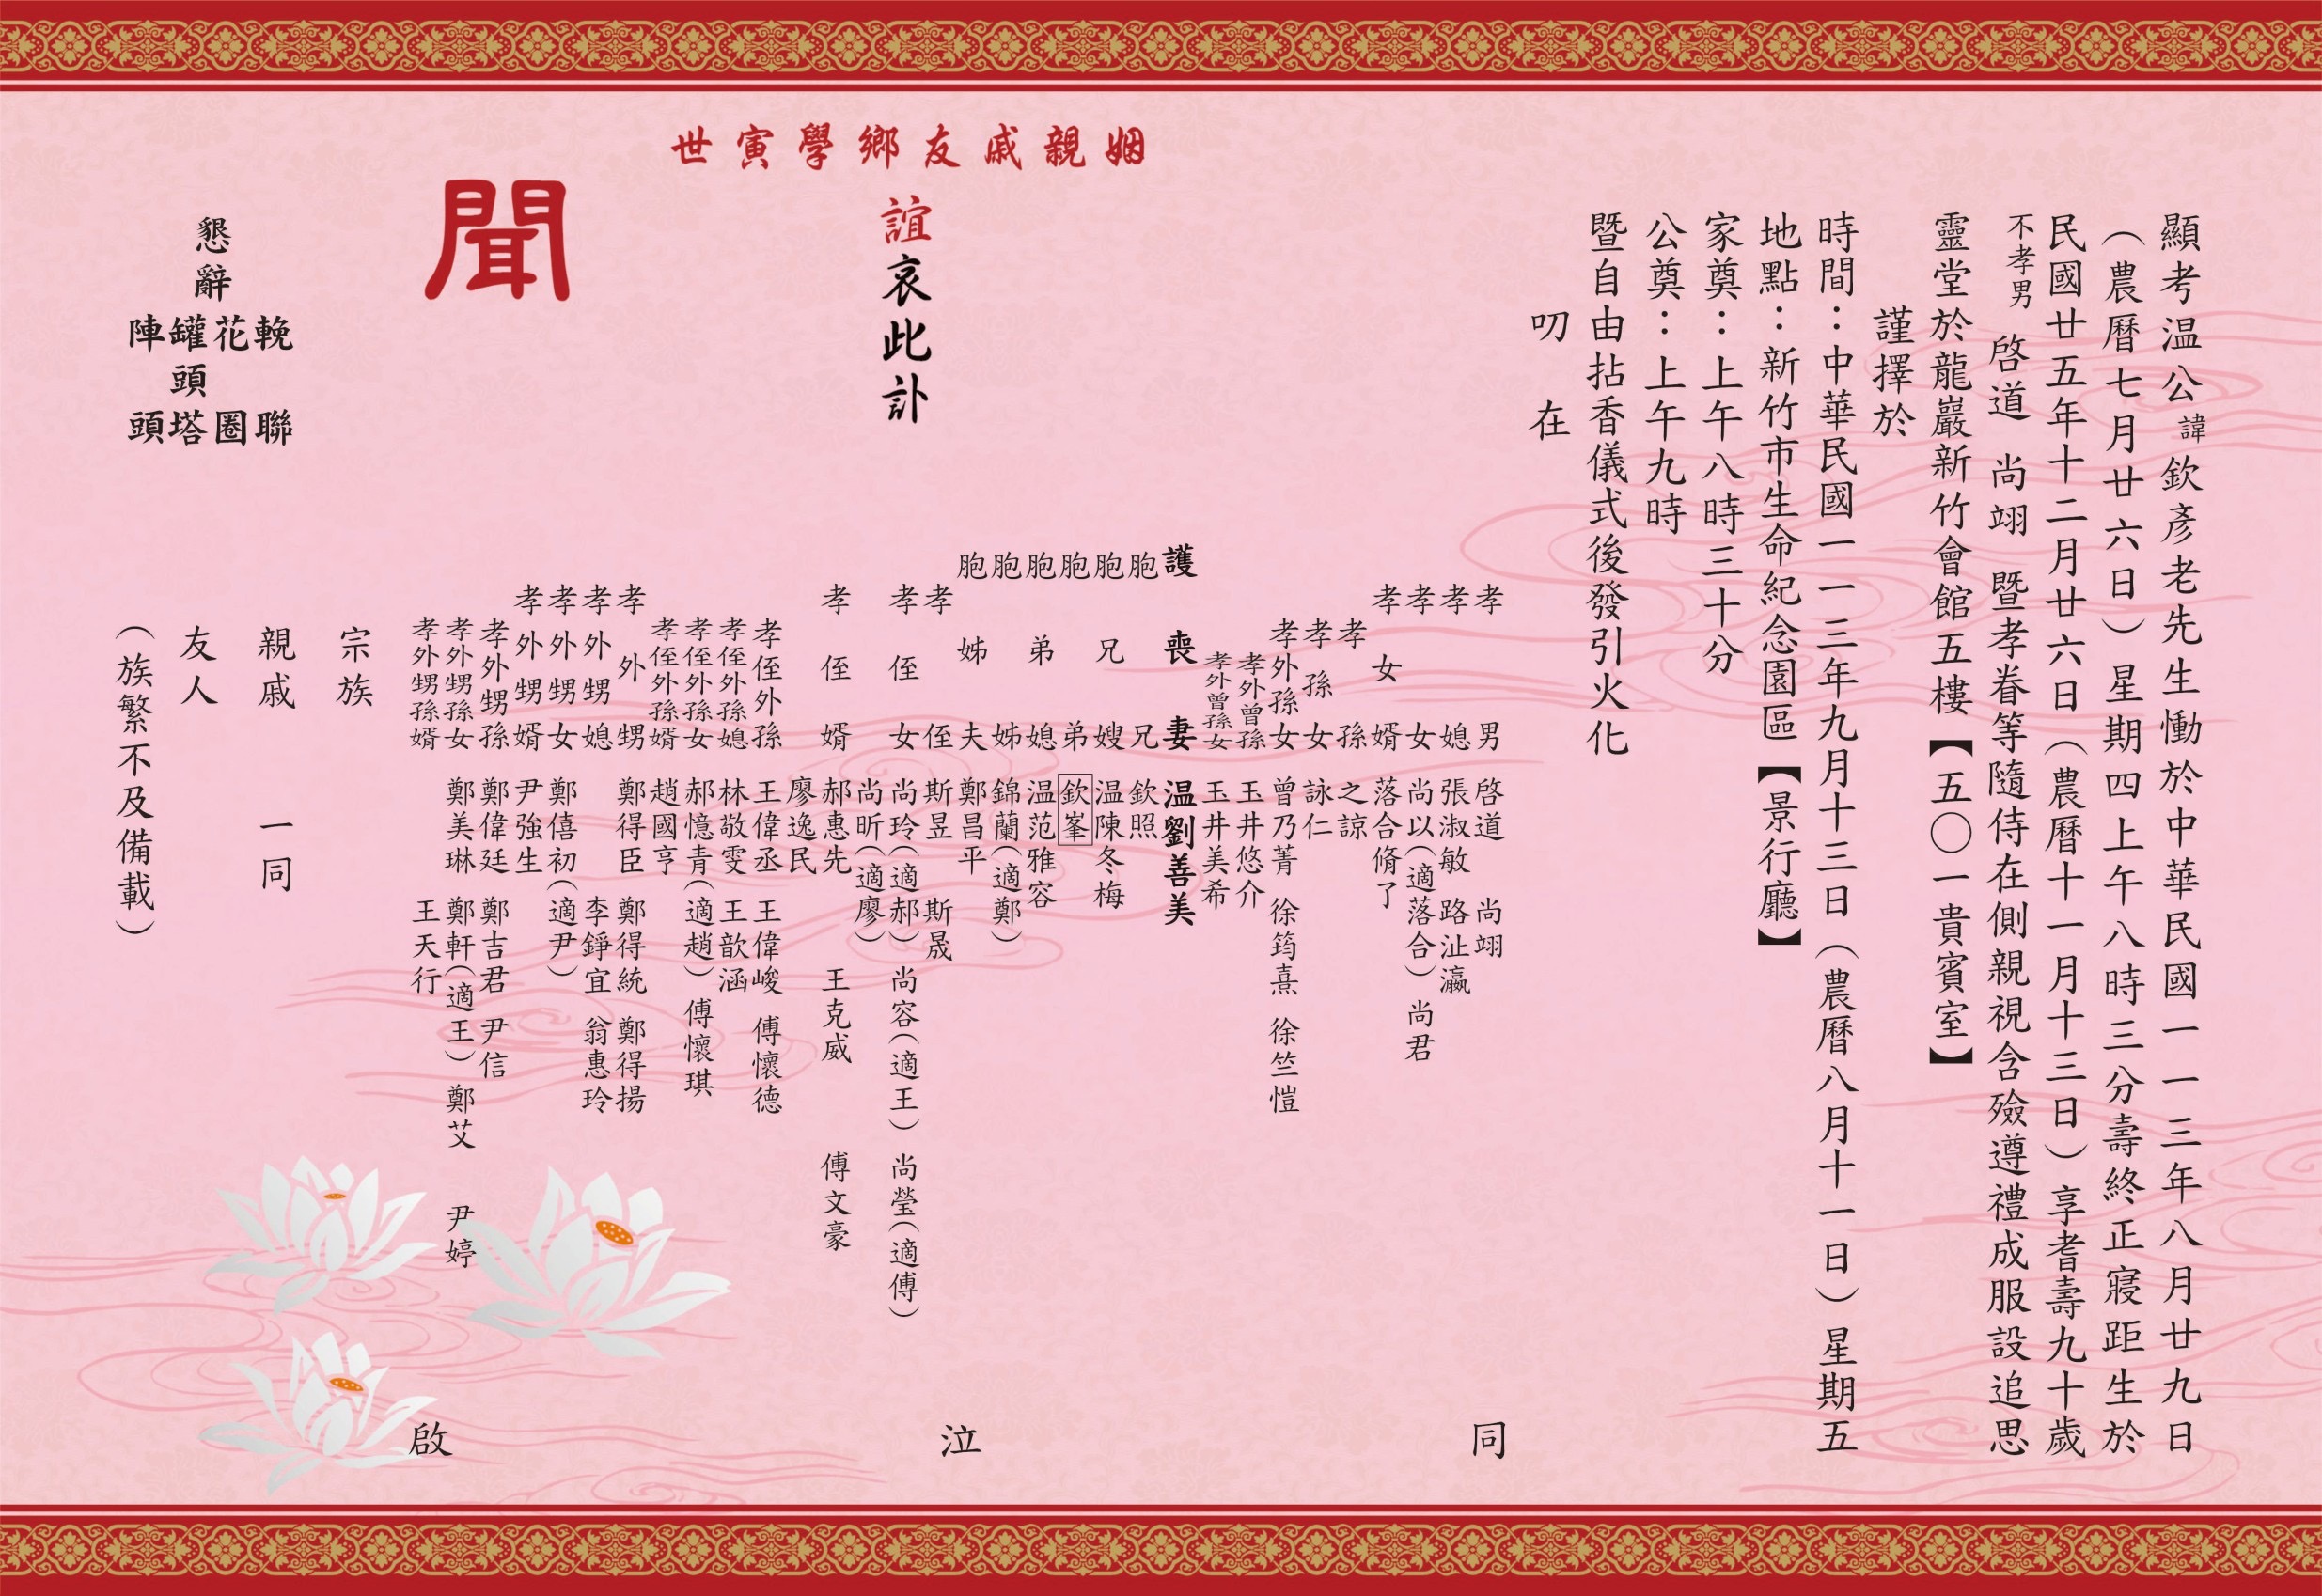 顯考温公諱欽彥老先生慟於中華民國一一三年八月廿九日
（農曆七月廿六日）星期四上午八時三分壽終正寢距生於
民國廿五年十二月廿六日（農曆十一月十三日）享耆壽九十歲
不孝男 啓道 尚翊 暨孝眷等隨侍在側親視含殮遵禮成服設追思
靈堂於龍巖新竹會館五樓【五〇一貴賓室】
謹擇於
時間：中華民國一一三年九月十三日（農曆八月十一日）星期五
地點：新竹市生命紀念園區【景行廳】
家奠：上午八時三十分
公奠：上午九時
暨自由拈香儀式後發引火化
叨 在
姻親戚友鄉學寅世
誼哀此訃
聞
孝男 啓道 尚翊
孝媳 張淑敏 路沚瀛
孝女 尚以（適落合） 尚君
孝女婿 落合脩了
孝孫 之諒
孝孫女 詠仁
孝外孫女 曾乃菁 徐筠熹 徐竺愷
孝外曾孫 玉井悠介
孝外曾孫女 玉井美希
護喪妻 温劉善美
胞兄 欽照
胞兄嫂 温陳冬梅
胞弟 欽峯
胞弟媳 温范雅容
胞姊 錦蘭（適鄭）
胞姊夫 鄭昌平
孝侄 斯昱 斯晟
孝侄女 尚玲（適郝） 尚容（適王） 尚瑩（適傅）
尚昕（適廖）
孝侄婿 郝惠先 王克威 傅文豪
廖逸民
孝侄外孫 王偉丞 王偉峻 傅懷德
孝侄外孫媳 林敬雯 王歆涵
孝侄外孫女 郝憶青（適趙） 傅懷琪
孝侄外孫婿 趙國亨
孝外甥 鄭得臣 鄭得統 鄭得揚
孝外甥媳 李錚宜 翁惠玲
孝外甥女 鄭僖初（適尹）
孝外甥婿 尹強生
孝外甥孫 鄭偉廷 鄭吉君 尹信
孝外甥孫女 鄭美琳 鄭軒（適王） 鄭艾 尹婷
孝外甥孫婿 王天行
同 泣 啟
宗族
親戚 一同
友人
（族繁不及備載）
懇辭
輓聯
花圈
罐頭塔
陣頭